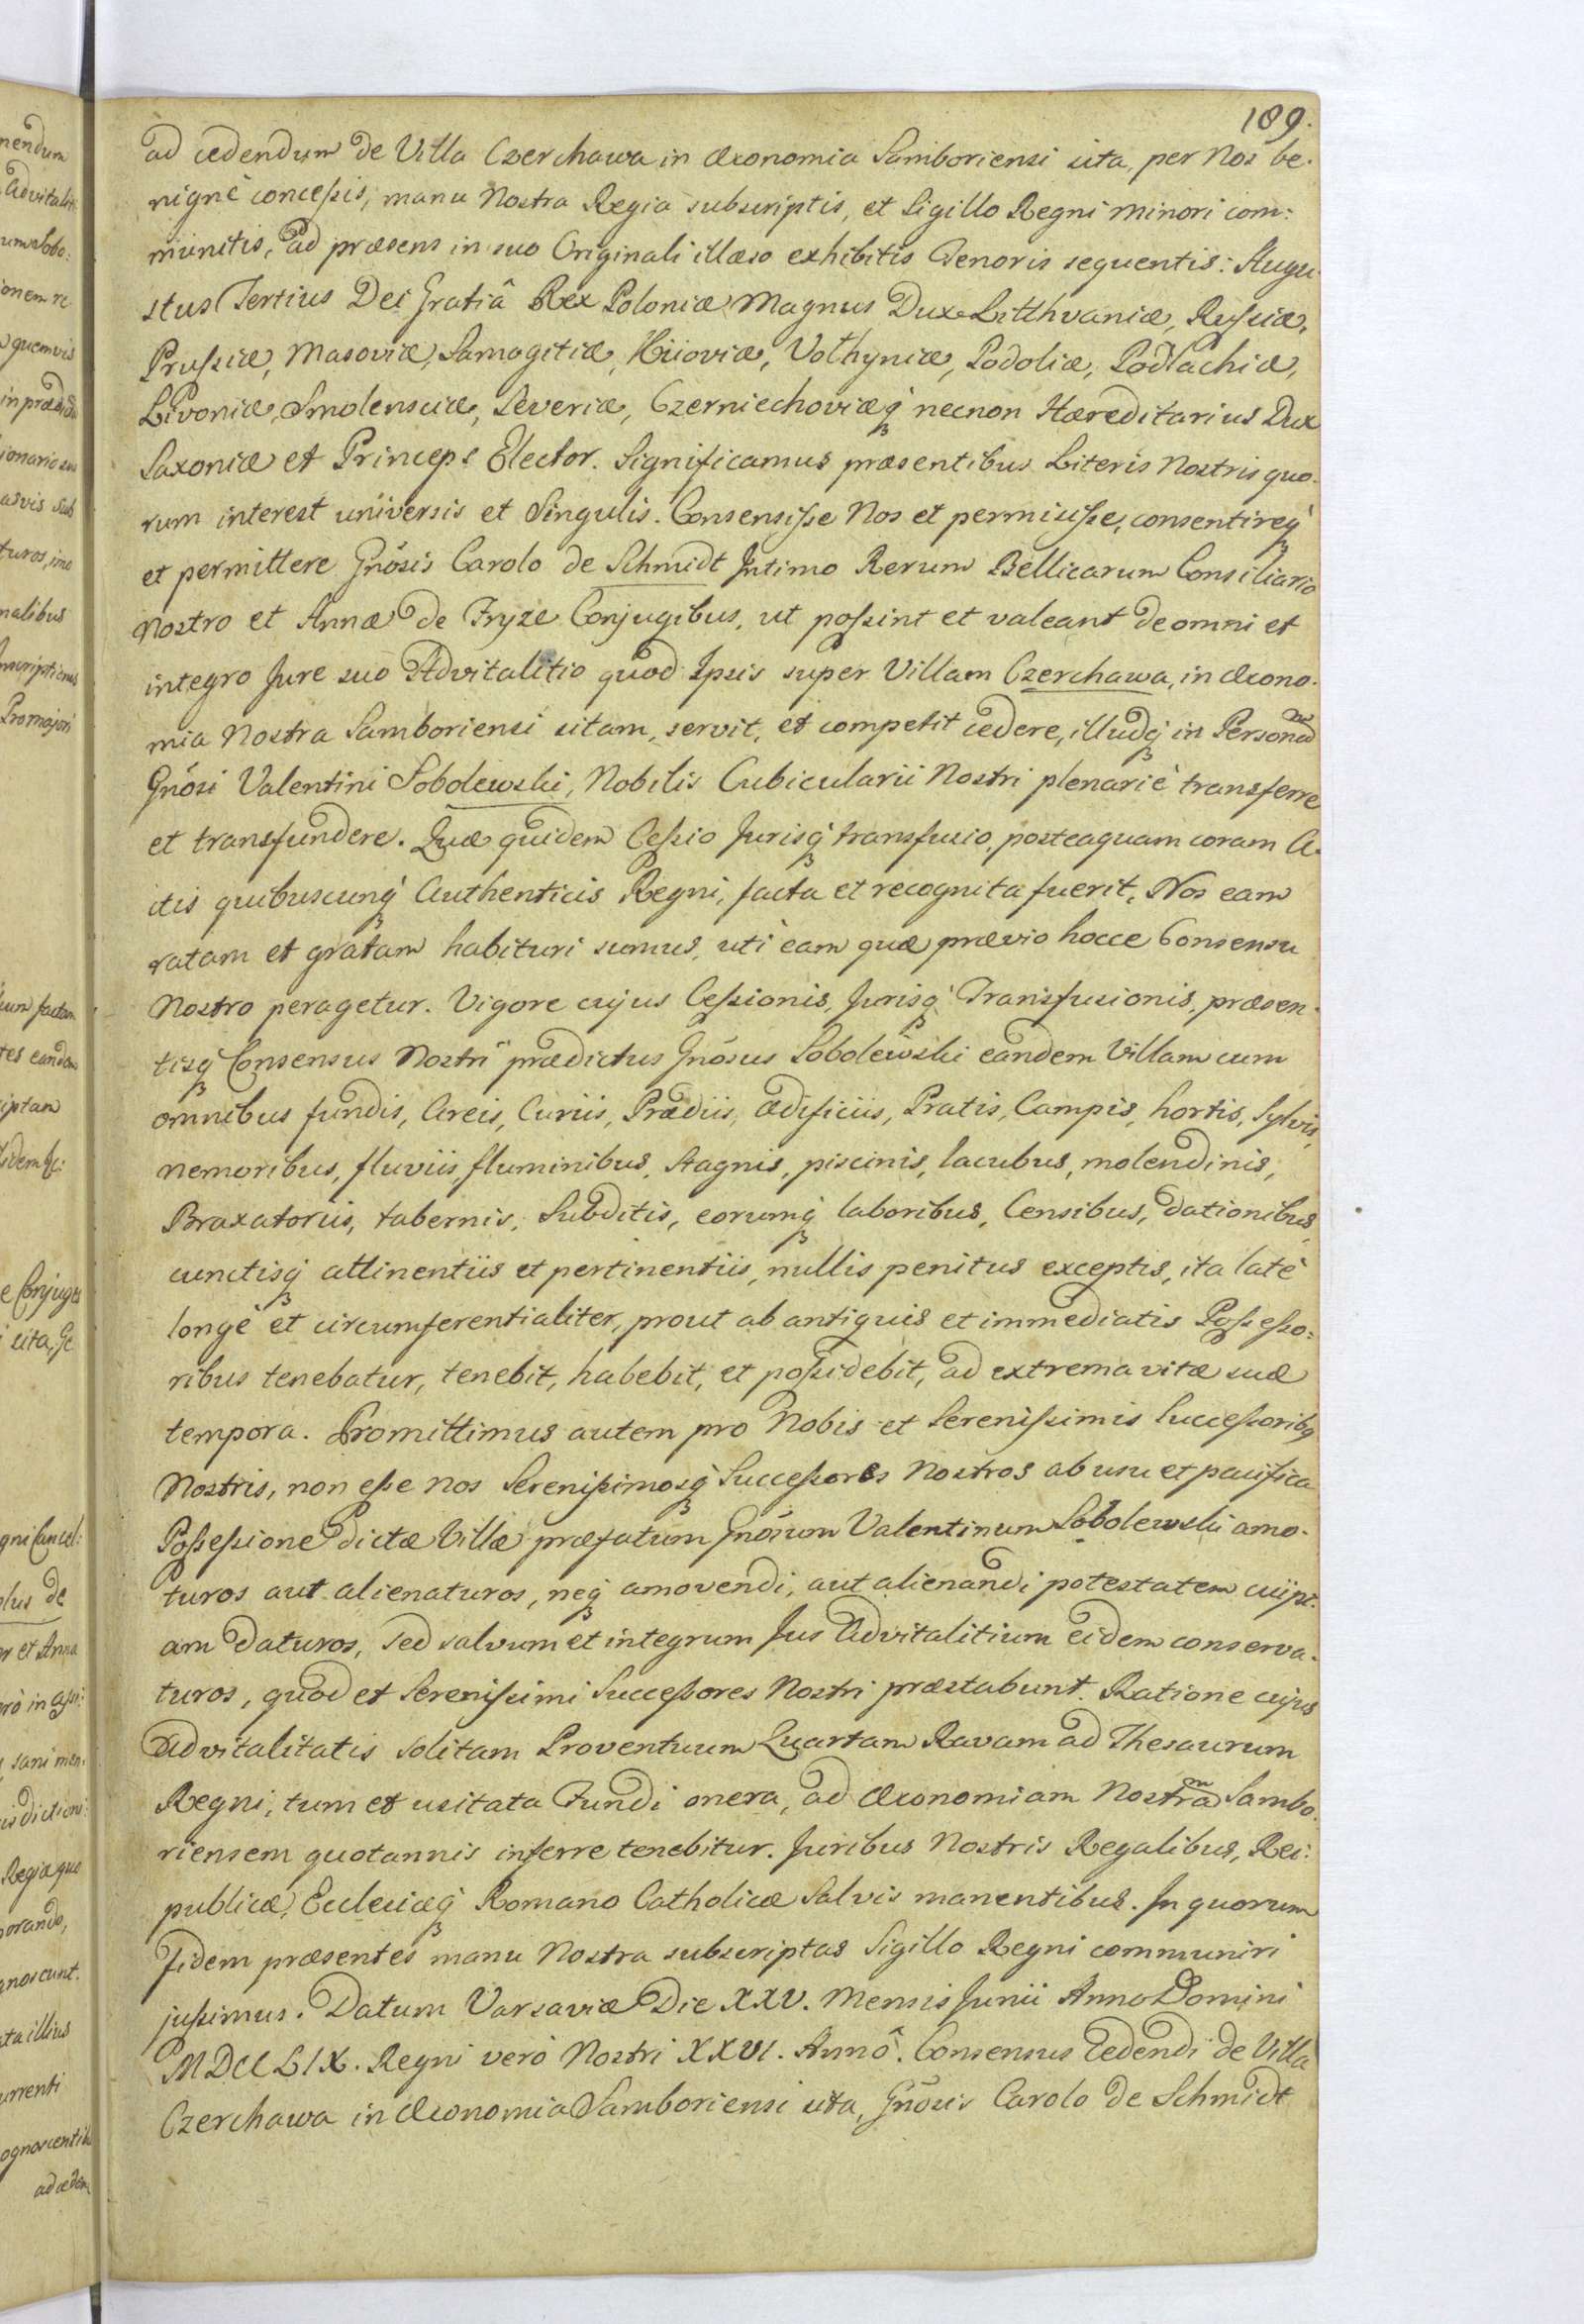 189.
ad cedendum de Villa Czerchawa in Œconomia Samboriensi sita, per Nos be-
nignè concessis, manu Nostra Regia subscriptis, et Sigillo Regni minori com:
munitis, ad præsens in suo Originali illæso exhibitis Tenoris sequentis: Augu-
stus Tertius Dei Gratiâ Rex Poloniæ Magnus Dux Litthvaniæ, Russiæ,
Prussiæ, Masoviæ, Samogitiæ, Kiioviæ, Volhyniæ, Podoliæ, Podlachiæ,
Livoniæ, Smolensciæ, Severiæ, Czerniechoviæq̃ necnon Hæreditarius Dux
Saxoniæ et Princeps Elector. Significamus præsentibus Literis Nostris quo-
rum interest universis et Singulis. Consensisse Nos et permisisse, consentireq̃
et permittere Gnõsis Carolo de Schmidt Intimo Rerum Bellicarum Consiliario
Nostro et Annæ de Fryze Conjugibus, ut possint et valeant de omni et
integro Jure suo Advitalitio quod Ipsis super Villam Czerchawa, in Œcono-
mia Nostra Samboriensi sitam, servit, et competit cedere, illudq̃ in Personam
Gnõsi Valentini Sobolewski, Nobilis Cubicularii Nostri plenariè transferre
et transfundere. Quæ quidem Cessio Jurisq̃ transfusio, posteaquam coram A-
ctis quibuscunq̃ Authenticis Regni, facta et recognita fuerit, Nos eam
ratam et gratam habituri sumus, uti eam quæ prævio hocce Consensu
Nostro peragetur. Vigore cujus Cessionis, Jurisq̃ Transfusionis, præsen-
tisq̃ Consensus Nostri prædictus Gnõsus Sobolewski eandem Villam cum
omnibus fundis, Areis, Curiis, Prædiis, ædificiis, Pratis, Campis, hortis, Sylvis,
nemoribus, fluviis, fluminibus, Stagnis, piscinis, lacubus, molendinis,
Braxatoriis, tabernis, Subditis, eorumq̃ laboribus, Censibus, dationibus,
cunctisq̃ attinentiis et pertinentiis, nullis penitus exceptis, ita latè
longè et circumferentialiter, prout ab antiquis et immediatis Possesso:
ribus tenebatur, tenebit, habebit, et possidebit, ad extrema vitæ suæ
tempora. Promittimus autem pro Nobis et Serenissimis Successoribq
Nostris, non esse nos Serenissimosq̃ Successores Nostros ab usu et pacifica
Possessione dictæ Villæ præfatum Gnõsum Valentinum Sobolewski amo-
turos aut alienaturos, neq̃ amovendi, aut alienandi potestatem cuipi-
am daturos, sed salvum et integrum Jus Advitalitium eidem conserva-
turos, quod et Serenissimi Successores Nostri præstabunt. Ratione cujus
Advitalitatis solitam Proventuum Quartam Ravam ad Thesaurum
Regni, tum et usitata Fundi onera, ad Œconomiam Nostram Sambo-
riensem quotannis inferre tenebitur. Juribus Nostris Regalibus, Rei:
publicæ, Ecclesiæq̃ Romano Catholicæ Salvis manentibus. In quorum
Fidem præsentes manu Nostra subscriptas Sigillo Regni communiri
jussimus. Datum Varsaviæ Die XXV. Mensis Junii Anno Domini
MDCCLIX. Regni verò Nostri XXVI. Annô. Consensus Cedendi de Villa
Czerchawa in Œconomia Samboriensi sita, Gnõsis Carolo de Schmidt